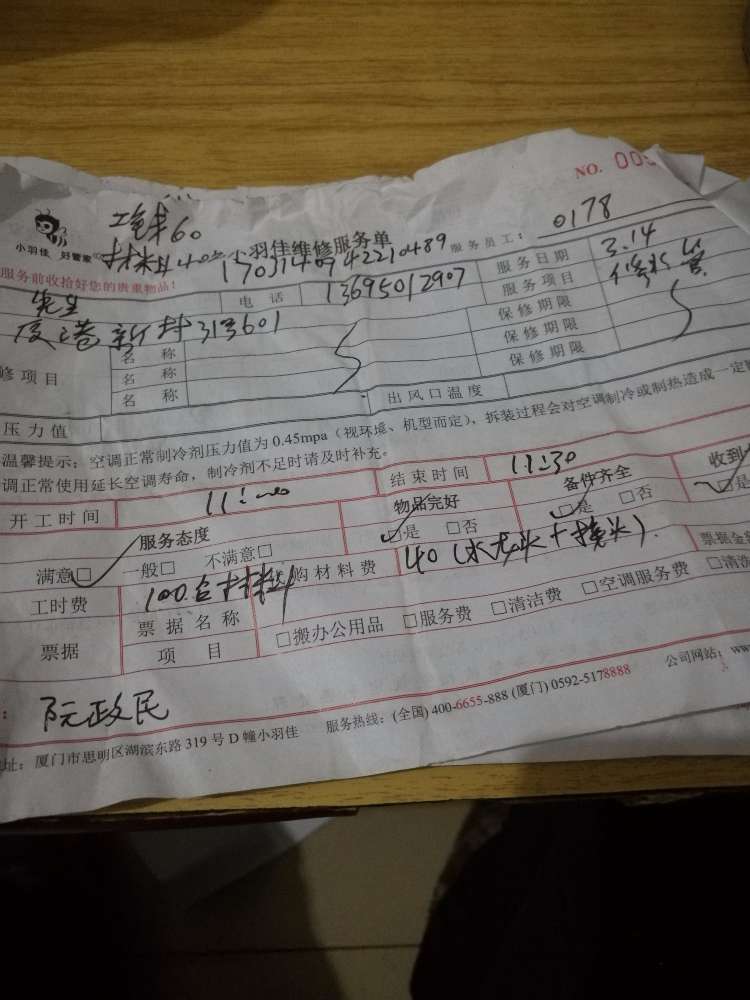 NO. 00
工钱60
小羽佳 好管家
材料40
小羽佳维修服务单
服务员工: 0178
服务前收拾好您的贵重物品!
1703140942210489
服务日期 3.14
先生 电话 13695012907 服务项目 修水管
新村313601 保修期限
修项目 名称 保修期限
名称 保修期限
名称 出风口温度
压力值
温馨提示:空调正常制冷剂压力值为0.45mpa(视环境、机型而定),拆装过程会对空调制冷或制热造成一定
调正常使用延长空调寿命,制冷剂不足时请及时补充。
开工时间 11: 结束时间 11:30
服务态度 物品完好 备件齐全 收到
满意□ 一般□ 不满意□ □是 □否 □是 □否 □是
工时费 100含材料 购材料费 40(水龙头+接头). 票据金
票据 票据名称 项目 □搬办公用品 □服务费 □清洁费 □空调服务费 □清洗
: 阮政民
址:厦门市思明区湖滨东路319号D幢小羽佳 服务热线:(全国)400-6655-888 (厦门)0592-5178888 公司网站:www